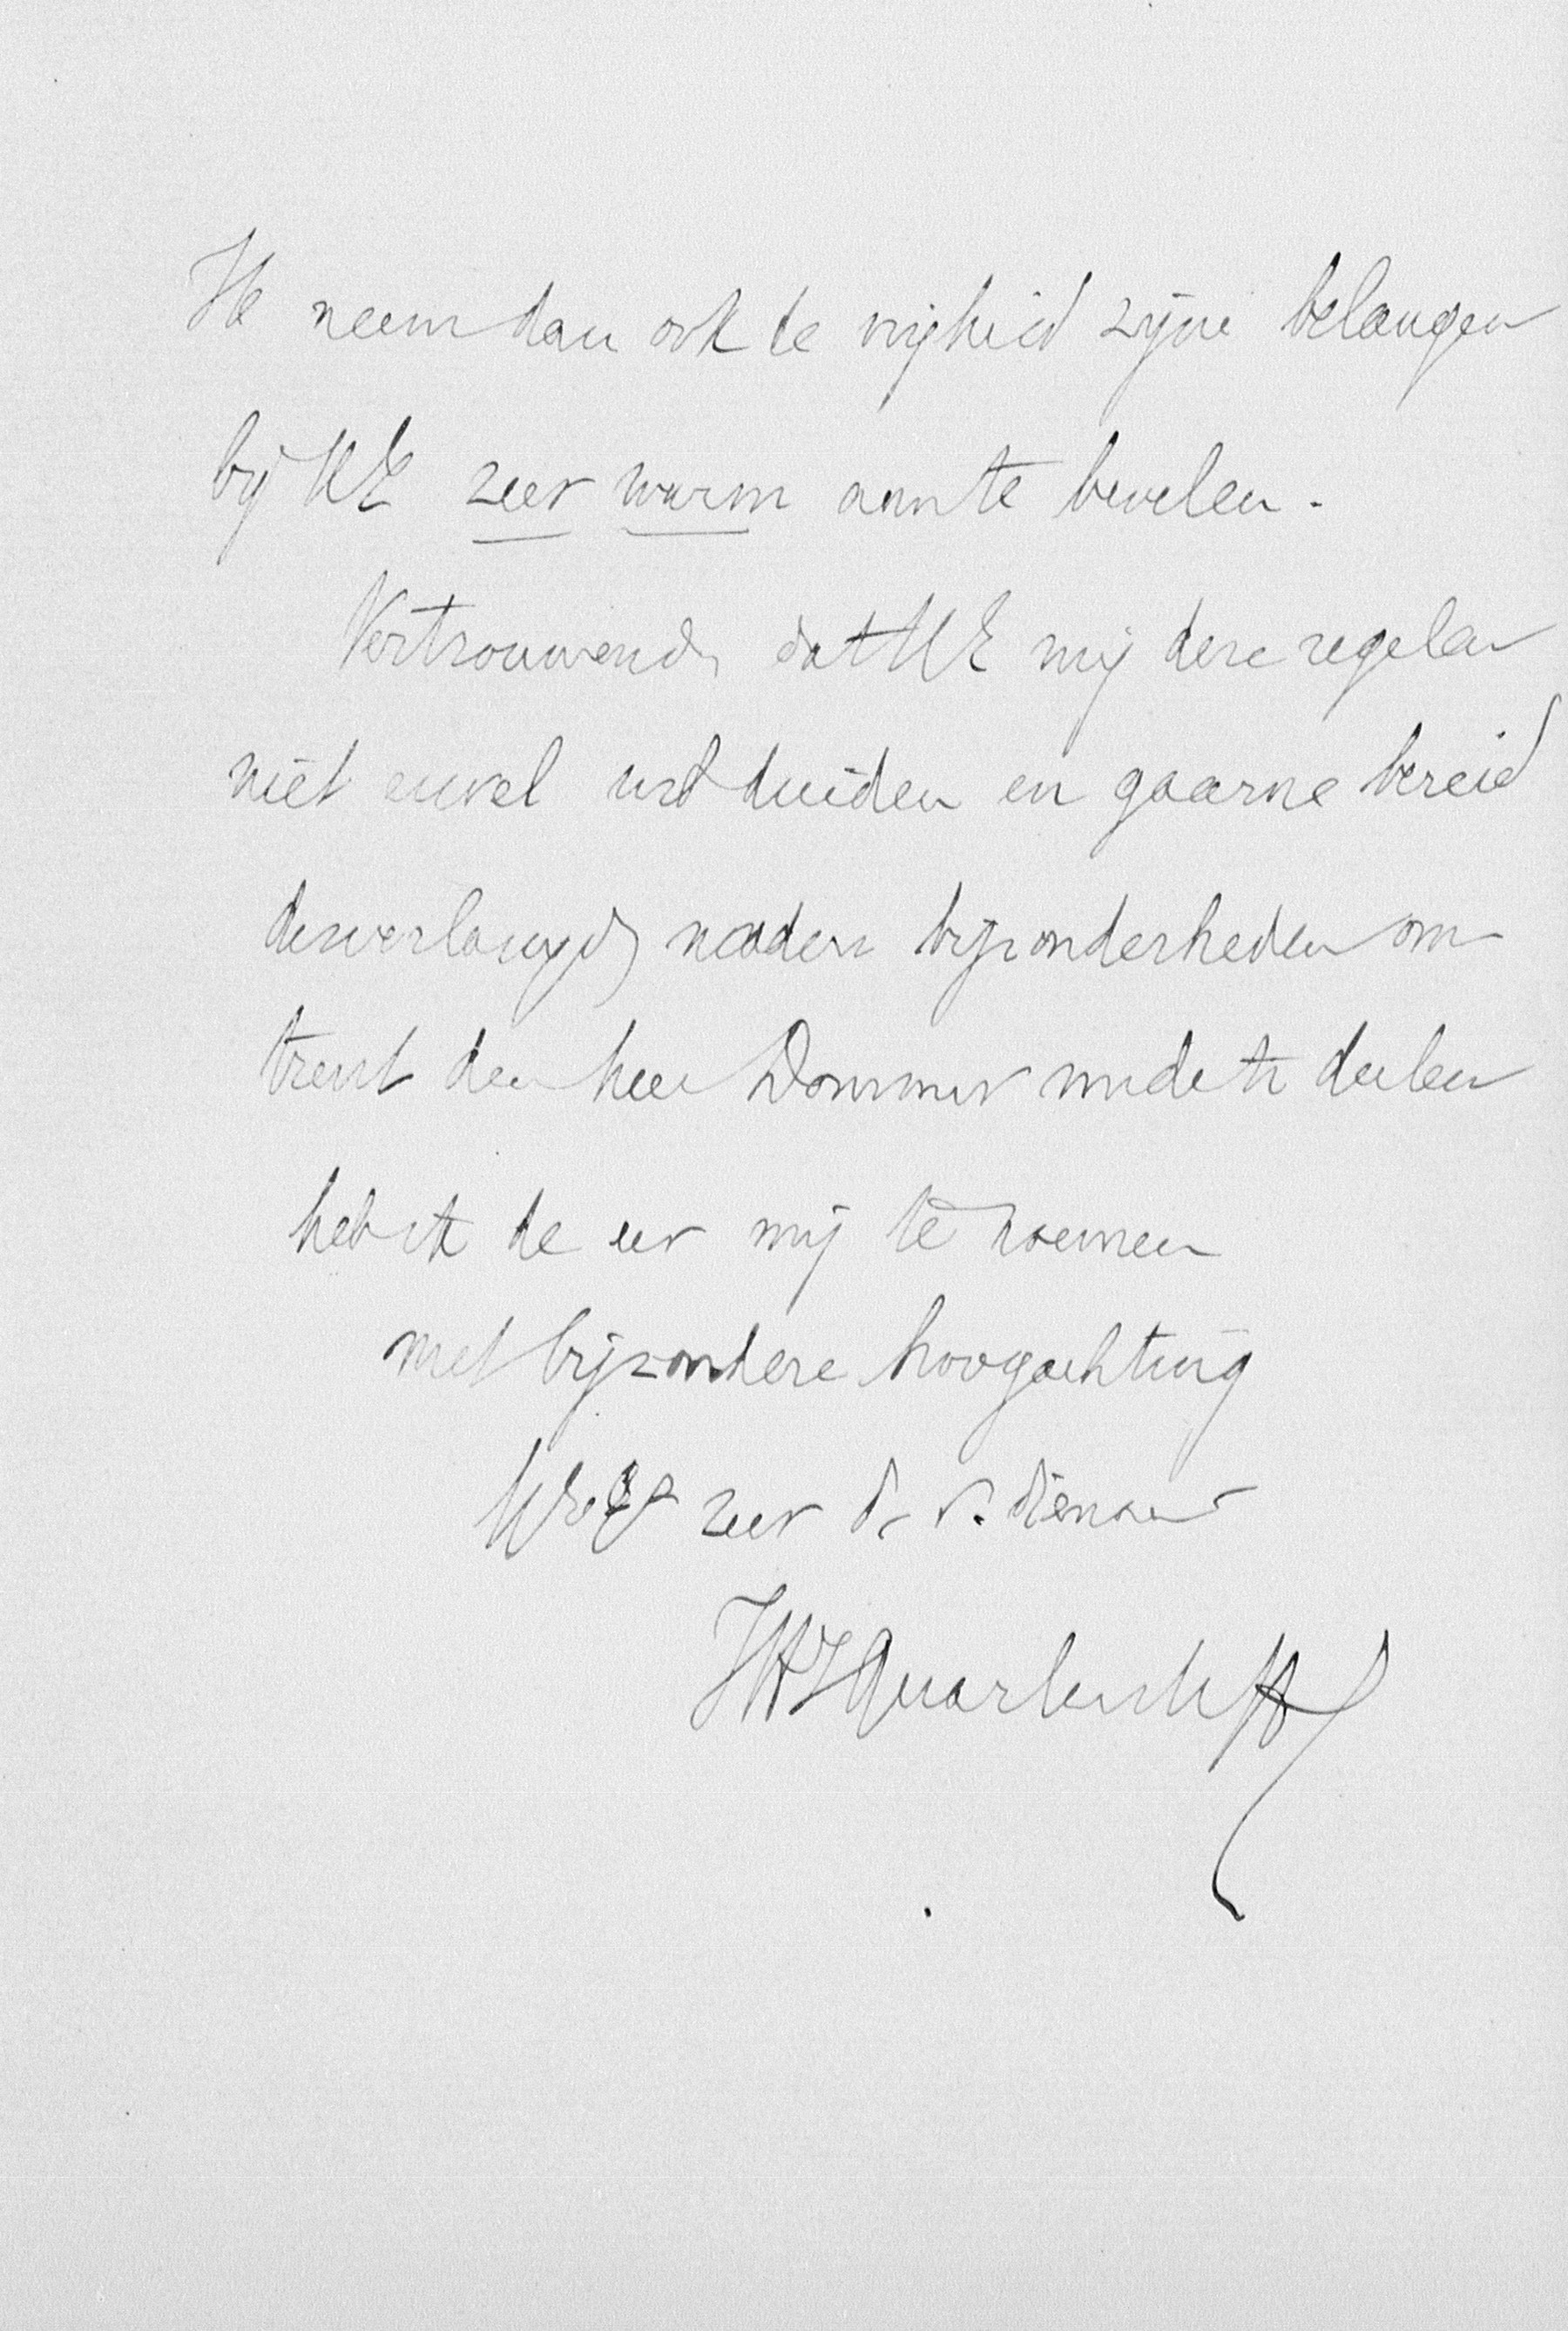 Ik neem dan ook de vrijheid zijne belangen
bij UE zeer warm aan te bevelen.
Vertrouwend, dat UE mij deze regelen
niet euvel zult duiden en gaarne bereid
desverlangd nadere bijzonderheden om
trent den heer Dommer mede te deelen
heb ik de eer mij te noemen
met bijzondere hoogachting
zeer d. v. dienaar
Quarles